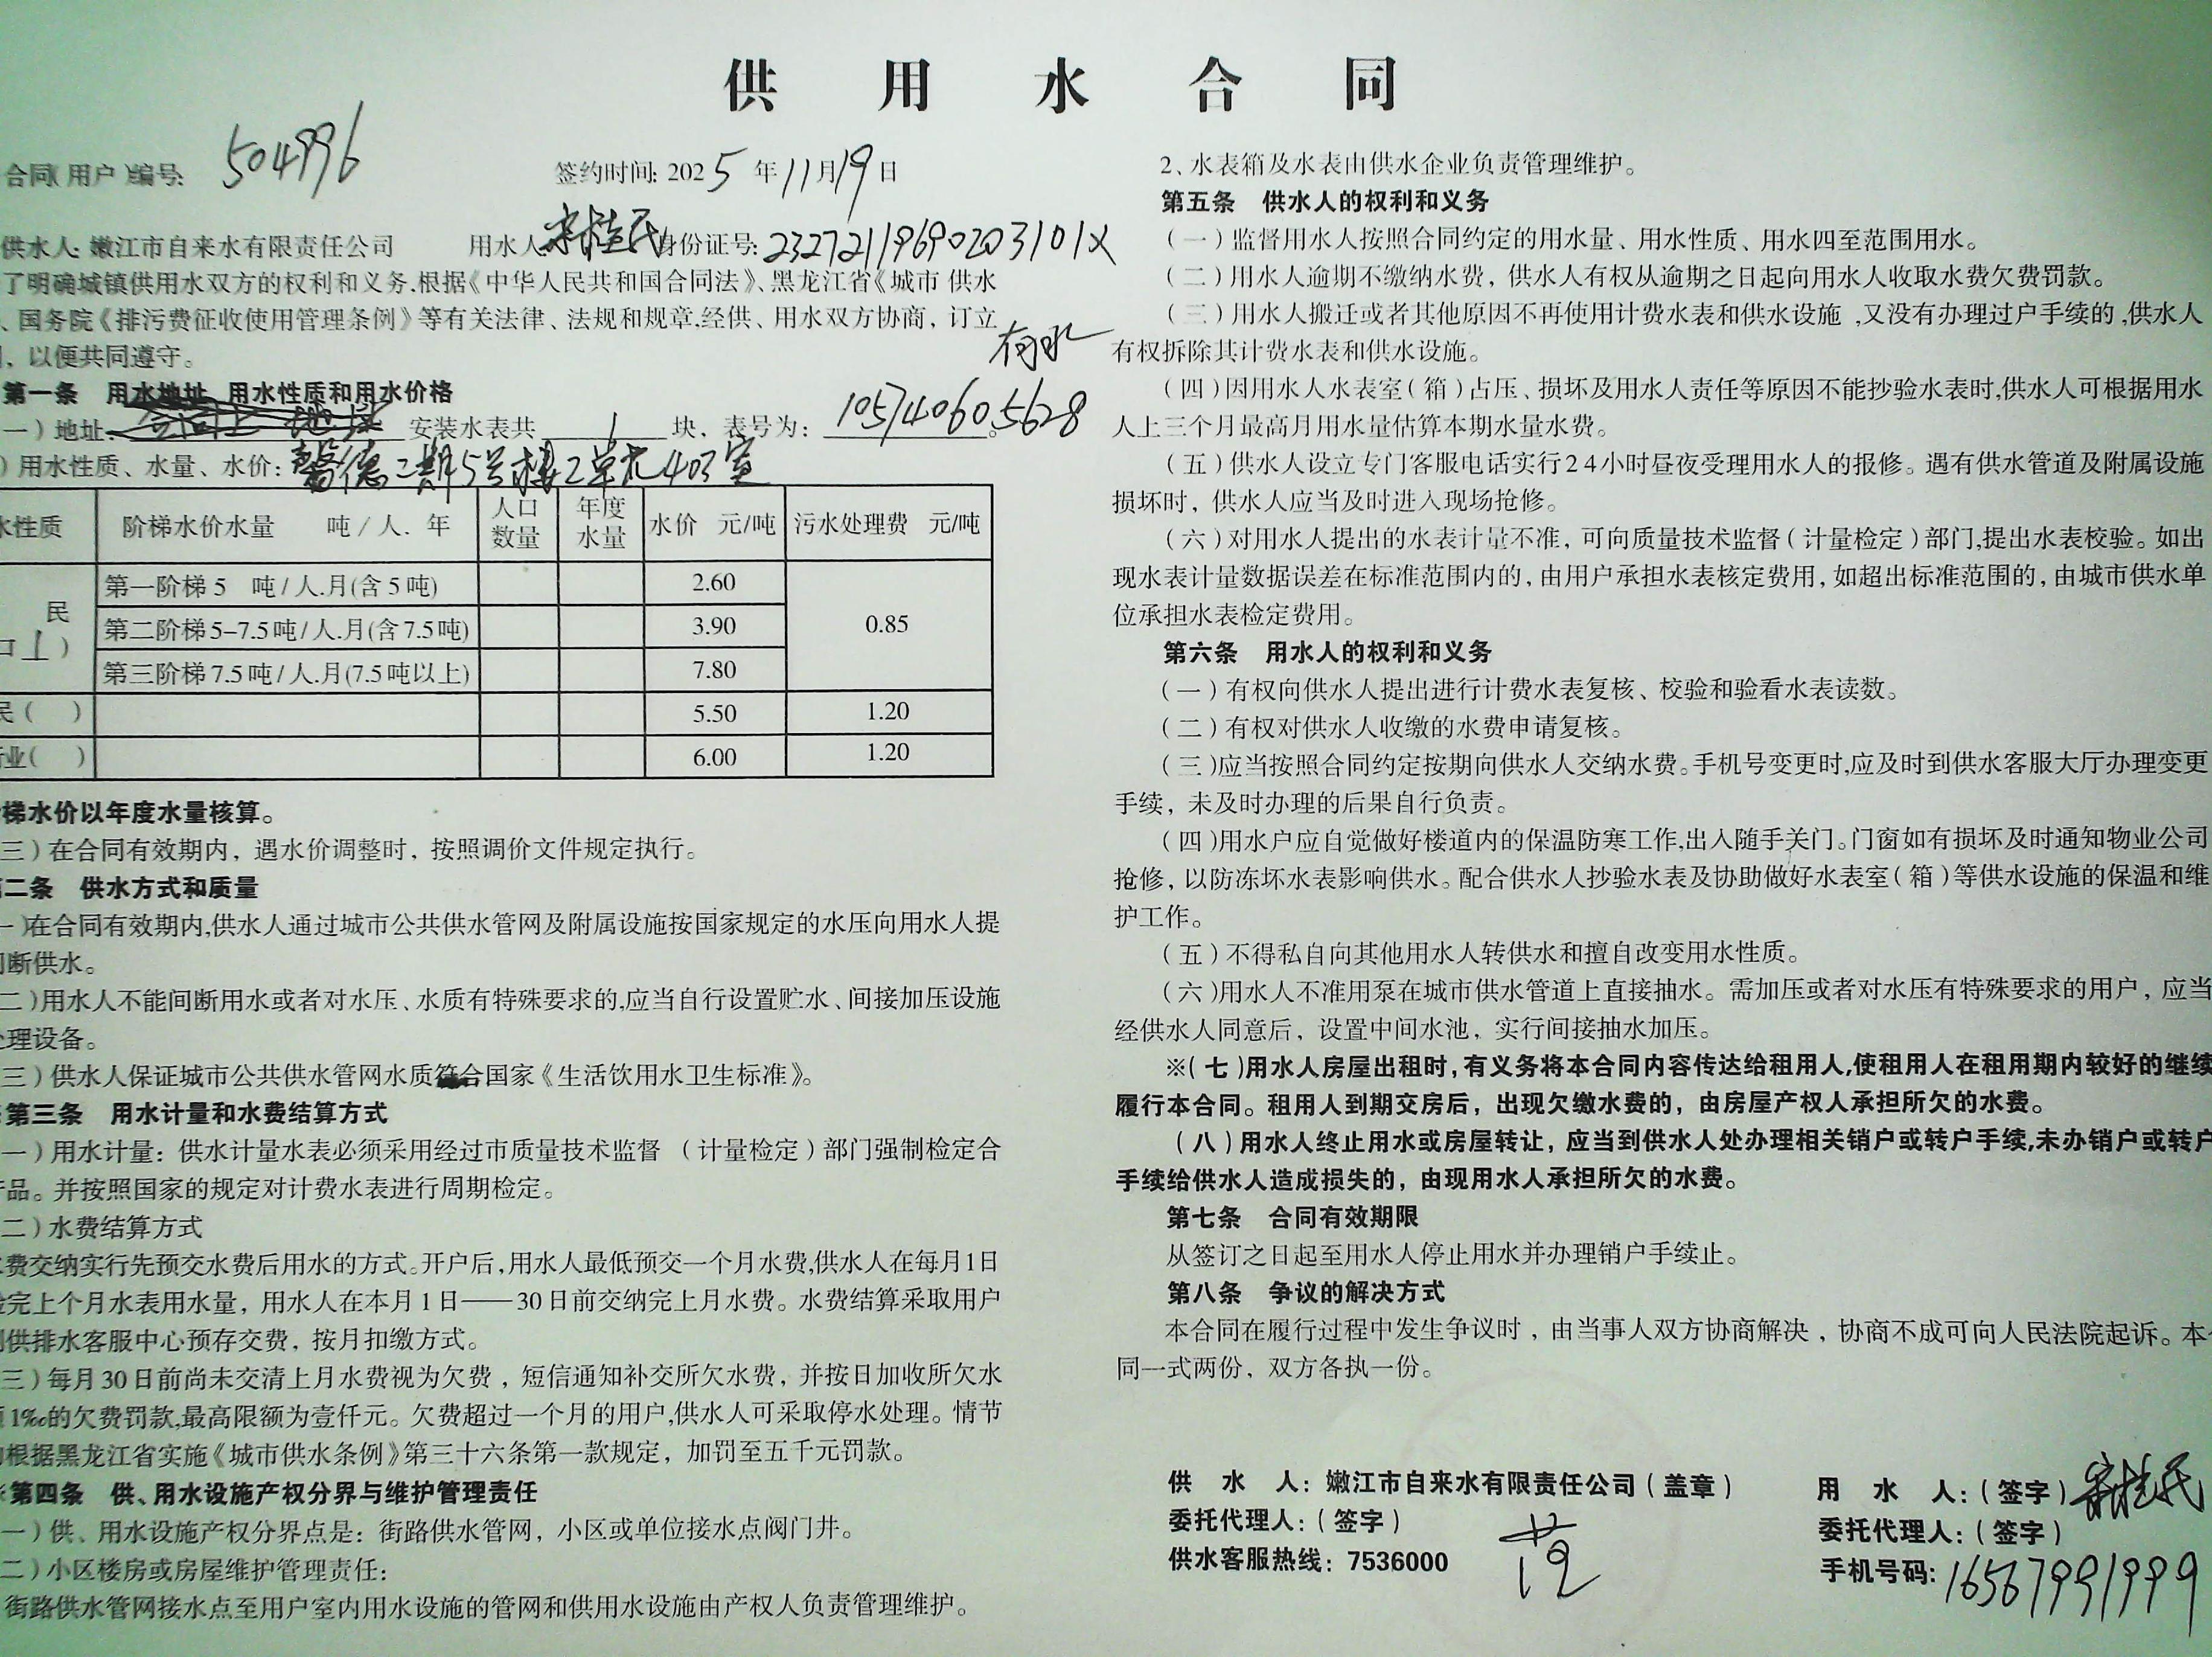 供用水合同
合同(用户)编号: 504996 签约时间: 2025年11月19日
供水人: 嫩江市自来水有限责任公司 用水人 宋桂民 身份证号: 23272119690203101X
了明确城镇供用水双方的权利和义务,根据《中华人民共和国合同法》、黑龙江省《城市 供水
、国务院《排污费征收使用管理条例》等有关法律、法规和规章,经供、用水双方协商，订立
，以便共同遵守。
第一条 用水地址、用水性质和用水价格
一)地址: 安装水表共 1 块，表号为: 105740605628。
)用水性质、水量、水价: 馨德二期5号楼2单元403室
水性质 阶梯水价水量 吨/人.年 人口数量 年度水量 水价 元/吨 污水处理费 元/吨
民 第一阶梯5 吨/人.月(含5吨) 2.60 0.85
第二阶梯5-7.5吨/人.月(含7.5吨) 3.90
第三阶梯7.5吨/人.月(7.5吨以上) 7.80
民( ) 5.50 1.20
业( ) 6.00 1.20
梯水价以年度水量核算。
三)在合同有效期内，遇水价调整时，按照调价文件规定执行。
二条 供水方式和质量
一)在合同有效期内,供水人通过城市公共供水管网及附属设施按国家规定的水压向用水人提
断供水。
二)用水人不能间断用水或者对水压、水质有特殊要求的,应当自行设置贮水、间接加压设施
理设备。
三)供水人保证城市公共供水管网水质符合国家《生活饮用水卫生标准》。
第三条 用水计量和水费结算方式
一)用水计量：供水计量水表必须采用经过市质量技术监督 (计量检定)部门强制检定合
品。并按照国家的规定对计费水表进行周期检定。
二)水费结算方式
费交纳实行先预交水费后用水的方式。开户后,用水人最低预交一个月水费,供水人在每月1日
完上个月水表用水量，用水人在本月1日——30日前交纳完上月水费。水费结算采取用户
供排水客服中心预存交费，按月扣缴方式。
三)每月30日前尚未交清上月水费视为欠费，短信通知补交所欠水费，并按日加收所欠水
1‰的欠费罚款,最高限额为壹仟元。欠费超过一个月的用户,供水人可采取停水处理。情节
根据黑龙江省实施《城市供水条例》第三十六条第一款规定，加罚至五千元罚款。
第四条 供、用水设施产权分界与维护管理责任
一)供、用水设施产权分界点是：街路供水管网，小区或单位接水点阀门井。
二)小区楼房或房屋维护管理责任:
街路供水管网接水点至用户室内用水设施的管网和供用水设施由产权人负责管理维护。
2、水表箱及水表由供水企业负责管理维护。
第五条 供水人的权利和义务
(一)监督用水人按照合同约定的用水量、用水性质、用水四至范围用水。
(二)用水人逾期不缴纳水费，供水人有权从逾期之日起向用水人收取水费欠费罚款。
(三)用水人搬迁或者其他原因不再使用计费水表和供水设施,又没有办理过户手续的,供水人
有权拆除其计费水表和供水设施。
(四)因用水人水表室(箱)占压、损坏及用水人责任等原因不能抄验水表时,供水人可根据用水
人上三个月最高月用水量估算本期水量水费。
(五)供水人设立专门客服电话实行24小时昼夜受理用水人的报修。遇有供水管道及附属设施
损坏时，供水人应当及时进入现场抢修。
(六)对用水人提出的水表计量不准，可向质量技术监督(计量检定)部门,提出水表校验。如出
现水表计量数据误差在标准范围内的，由用户承担水表核定费用，如超出标准范围的，由城市供水单
位承担水表检定费用。
第六条 用水人的权利和义务
(一)有权向供水人提出进行计费水表复核、校验和验看水表读数。
(二)有权对供水人收缴的水费申请复核。
(三)应当按照合同约定按期向供水人交纳水费。手机号变更时,应及时到供水客服大厅办理变更
手续，未及时办理的后果自行负责。
(四)用水户应自觉做好楼道内的保温防寒工作,出入随手关门。门窗如有损坏及时通知物业公司
抢修，以防冻坏水表影响供水。配合供水人抄验水表及协助做好水表室(箱)等供水设施的保温和维
护工作。
(五)不得私自向其他用水人转供水和擅自改变用水性质。
(六)用水人不准用泵在城市供水管道上直接抽水。需加压或者对水压有特殊要求的用户，应当
经供水人同意后，设置中间水池，实行间接抽水加压。
※(七)用水人房屋出租时,有义务将本合同内容传达给租用人,使租用人在租用期内较好的继续
履行本合同。租用人到期交房后，出现欠缴水费的，由房屋产权人承担所欠的水费。
(八)用水人终止用水或房屋转让，应当到供水人处办理相关销户或转户手续,未办销户或转户
手续给供水人造成损失的，由现用水人承担所欠的水费。
第七条 合同有效期限
从签订之日起至用水人停止用水并办理销户手续止。
第八条 争议的解决方式
本合同在履行过程中发生争议时，由当事人双方协商解决，协商不成可向人民法院起诉。本
同一式两份，双方各执一份。
供 水 人：嫩江市自来水有限责任公司(盖章)
委托代理人：(签字)
供水客服热线：7536000
用 水 人：(签字) 宋桂民
委托代理人：(签字)
手机号码: 16567991999